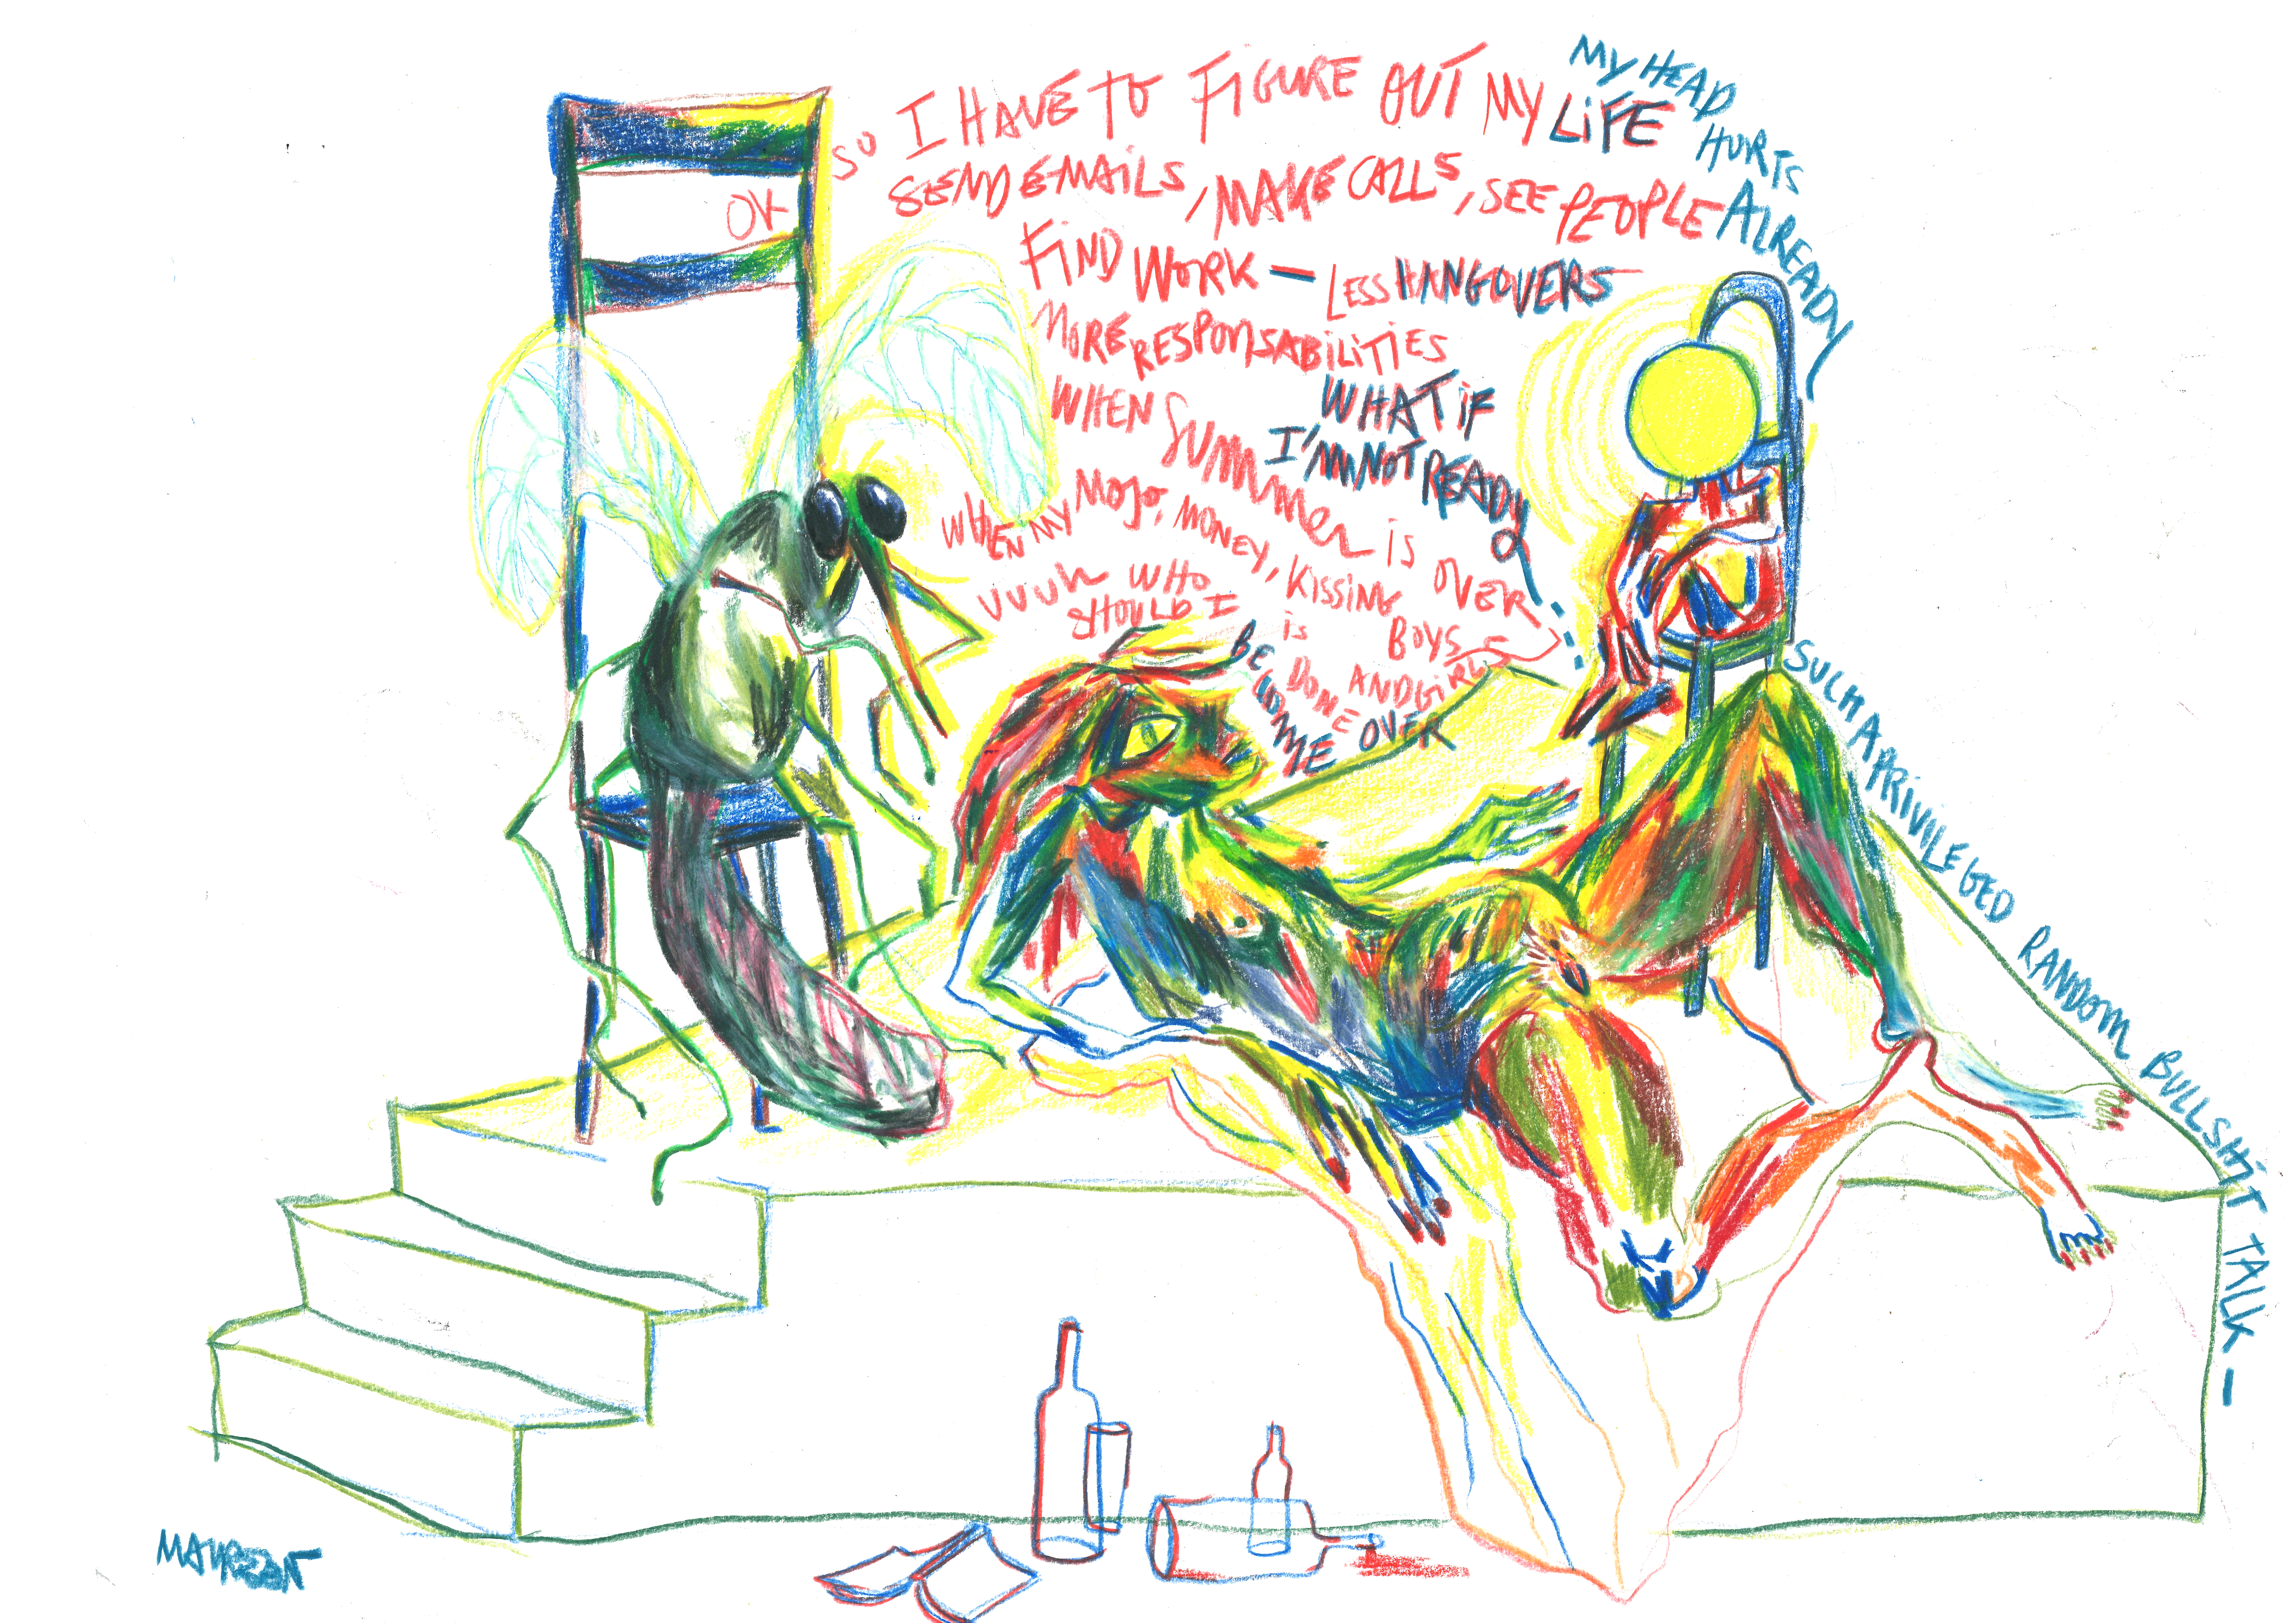 OK SO I HAVE TO FIGURE OUT MY LIFE
SEND EMAILS, MAKE CALLS, SEE PEOPLE
FIND WORK — LESS HANGOVERS
MORE RESPONSABILITIES
WHEN SUMMER IS OVER
WHEN MY MOJO, MONEY, KISSING BOYS AND GIRLS
IS DONE OVER
UUUH WHO SHOULD I BECOME
WHAT IF I'M NOT READY
MY HEAD HURTS ALREADY
SUCH A PRIVILEGED RANDOM BULLSHIT TALK —
MAUREEN